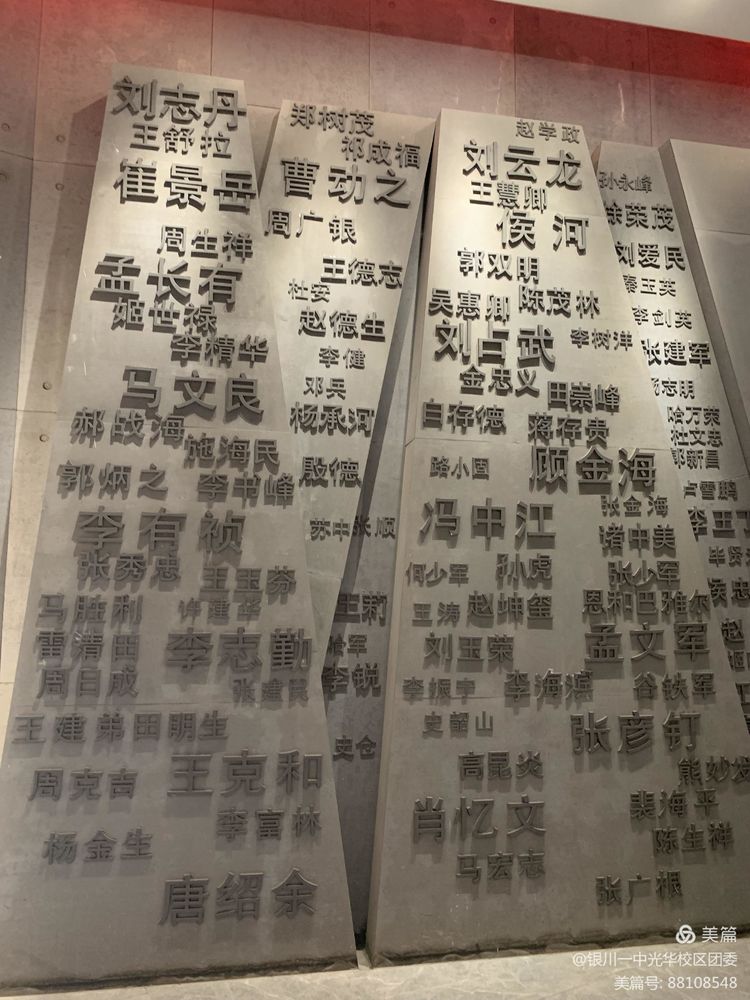 刘志丹
王舒拉
崔景岳
周生祥
孟长有
姬世禄
李精华
马文良
郝战海
施海民
郭炳之
李书峰
李有祯
张秀忠
王玉芬
马胜利
许建华
雷清田
李志勤
周日成
张建民
王建弟
田明生
周克吉
王克和
李富林
杨金生
唐绍余
郑树茂
祁成福
曹动之
周广银
王德志
杜安
赵德生
李健
邓兵
杨承河
殷德
苏中
张顺
王莉
李锐
史仓
赵学政
刘云龙
王慧卿
侯河
郭双明
吴惠卿
陈茂林
刘占武
李树洋
金忠义
田崇峰
白存德
蒋存贵
路小固
顾金海
张金海
冯中江
诸中美
何少军
孙虎
张少军
王涛
赵坤玺
恩和巴雅尔
刘玉荣
孟文军
李振宇
李海滨
谷铁军
史韶山
张彦钉
高昆炎
熊妙发
肖忆文
裴海平
陈生祥
马宏志
张广根
孙永峰
余荣茂
刘爱民
秦玉英
李剑英
张建军
杨志明
哈万荣
杜文忠
郭新昌
卢雪鹏
美篇
@银川一中光华校区团委
美篇号: 88108548